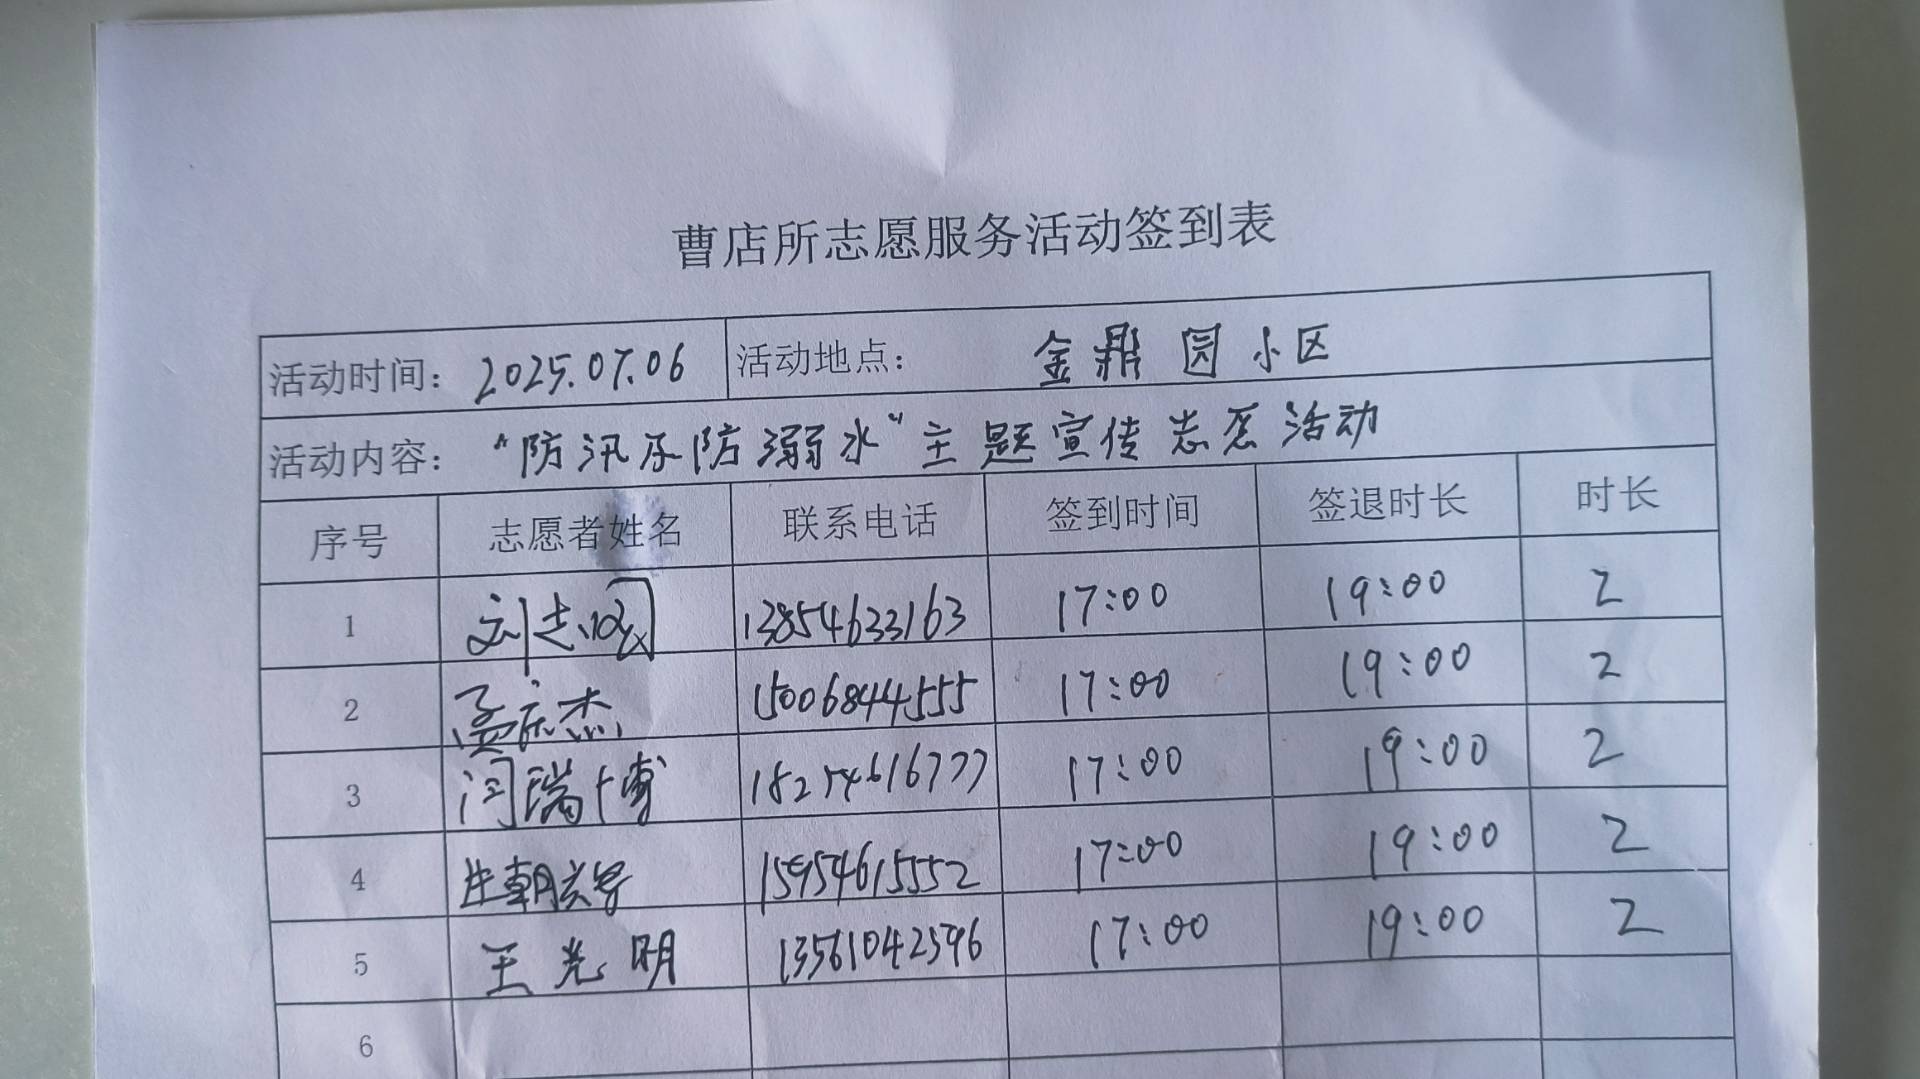 曹店所志愿服务活动签到表
活动时间: 2025.07.06 活动地点: 金鼎园小区
活动内容: “防汛及防溺水”主题宣传志愿活动
序号 志愿者姓名 联系电话 签到时间 签退时长 时长
1 刘志 13854633163 17:00 19:00 2
2 孟庆杰 15006844555 17:00 19:00 2
3 闫瑞博 18254616777 17:00 19:00 2
4 生朝 15954615552 17:00 19:00 2
5 王光明 13561042596 17:00 19:00 2
6